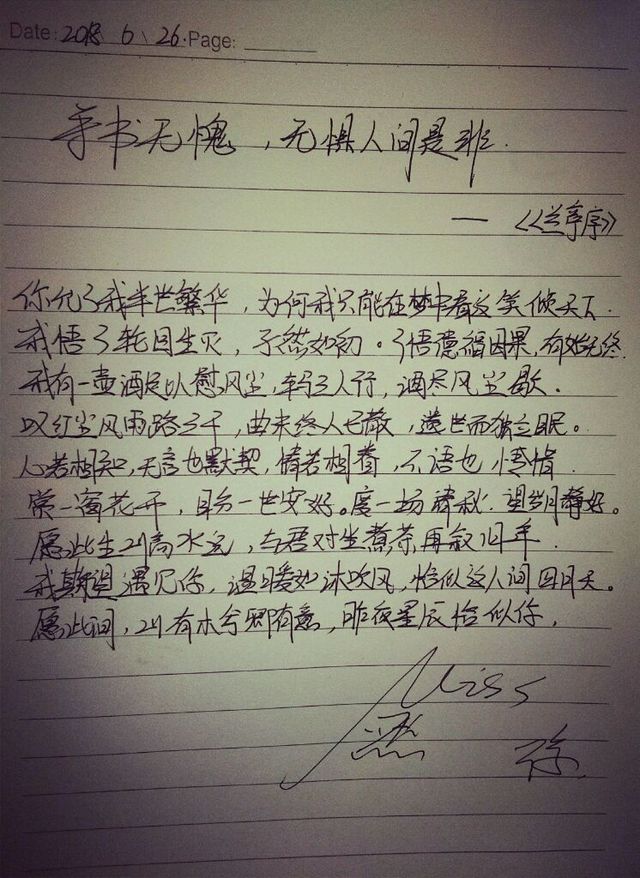 Date: 2018 6 26. Page:
手书无愧，无惧人间是非.
— 《兰亭序》
你允了我半世繁华，为何我只能在梦中看这笑倾天下.
我悟了轮回生灭，孑然如初。了悟德福因果，有始无终.
我有一壶酒足以慰风尘，韩马三人行，酒尽风尘歇.
叹红尘风雨路三千，曲未终人已散，遗世而独立眠。
心若相知，无言也默契，情若相眷，不语也怜惜.
赏一窗花开，自分一世安好。度一场清秋，望岁月静好。
愿此生山高水宽，与君对坐煮茶再叙旧年.
我期望遇见你，温暖如沐吹风，恰似这人间四月天。
愿此间，山有木兮卿有意，昨夜星辰恰似你.
Miss
你